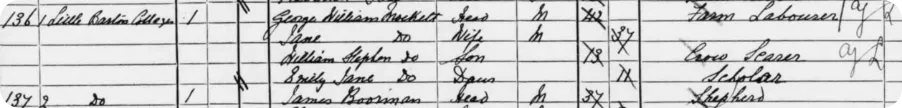 136 1 Little Bartons Cottages 1 George William Mockett Head M 42 Farm Labourer Ag L
Jane Do Wife M 37
William Stephen Do Son 13 Crow Scarer Ag L
Emily Jane Do Daur 11 Scholar
137 2 Do 1 James Boorman Head M 37 Shepherd